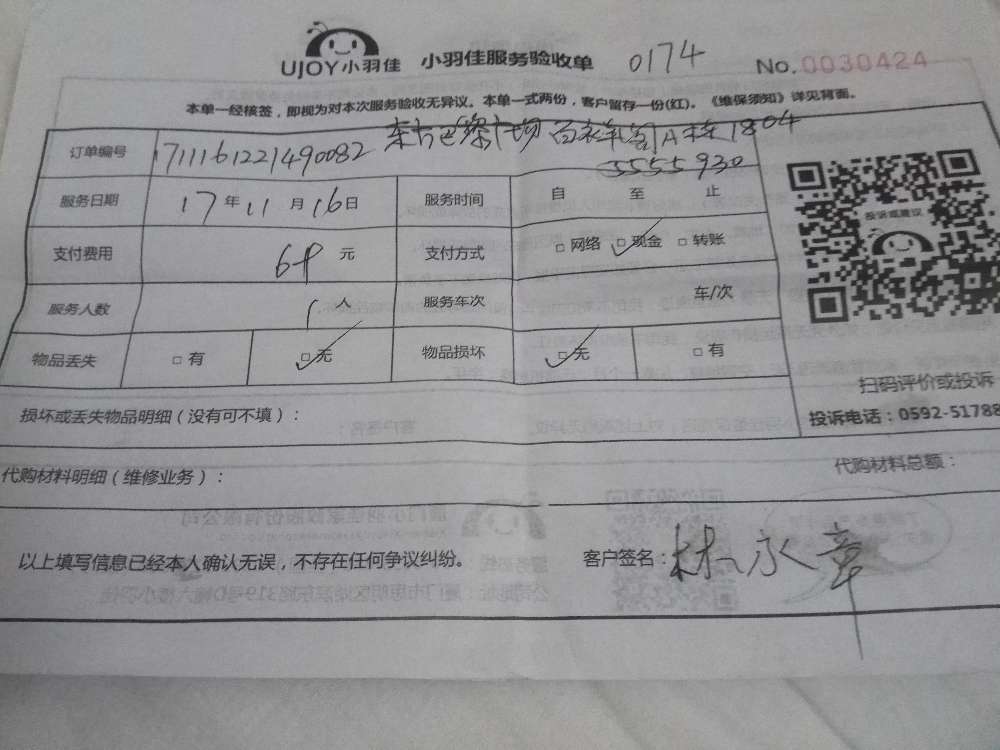 UJOY小羽佳 小羽佳服务验收单 0174 No.0030424
本单一经核签，即视为对本次服务验收无异议。本单一式两份，客户留存一份(红)。《维保须知》详见背面。
订单编号 171116122149008​2 东方巴黎广场 A栋1804
5555930
服务日期 17年11月16日 服务时间 自 至 止
支付费用 64 元 支付方式 □网络 □现金 □转账
投诉或建议
服务人数 1 人 服务车次 车/次
物品丢失 □有 □无 物品损坏 □无 □有
扫码评价或投诉
损坏或丢失物品明细（没有可不填）：
投诉电话：0592-51788
代购材料明细（维修业务）：
代购材料总额：
以上填写信息已经本人确认无误，不存在任何争议纠纷。 客户签名：林永章